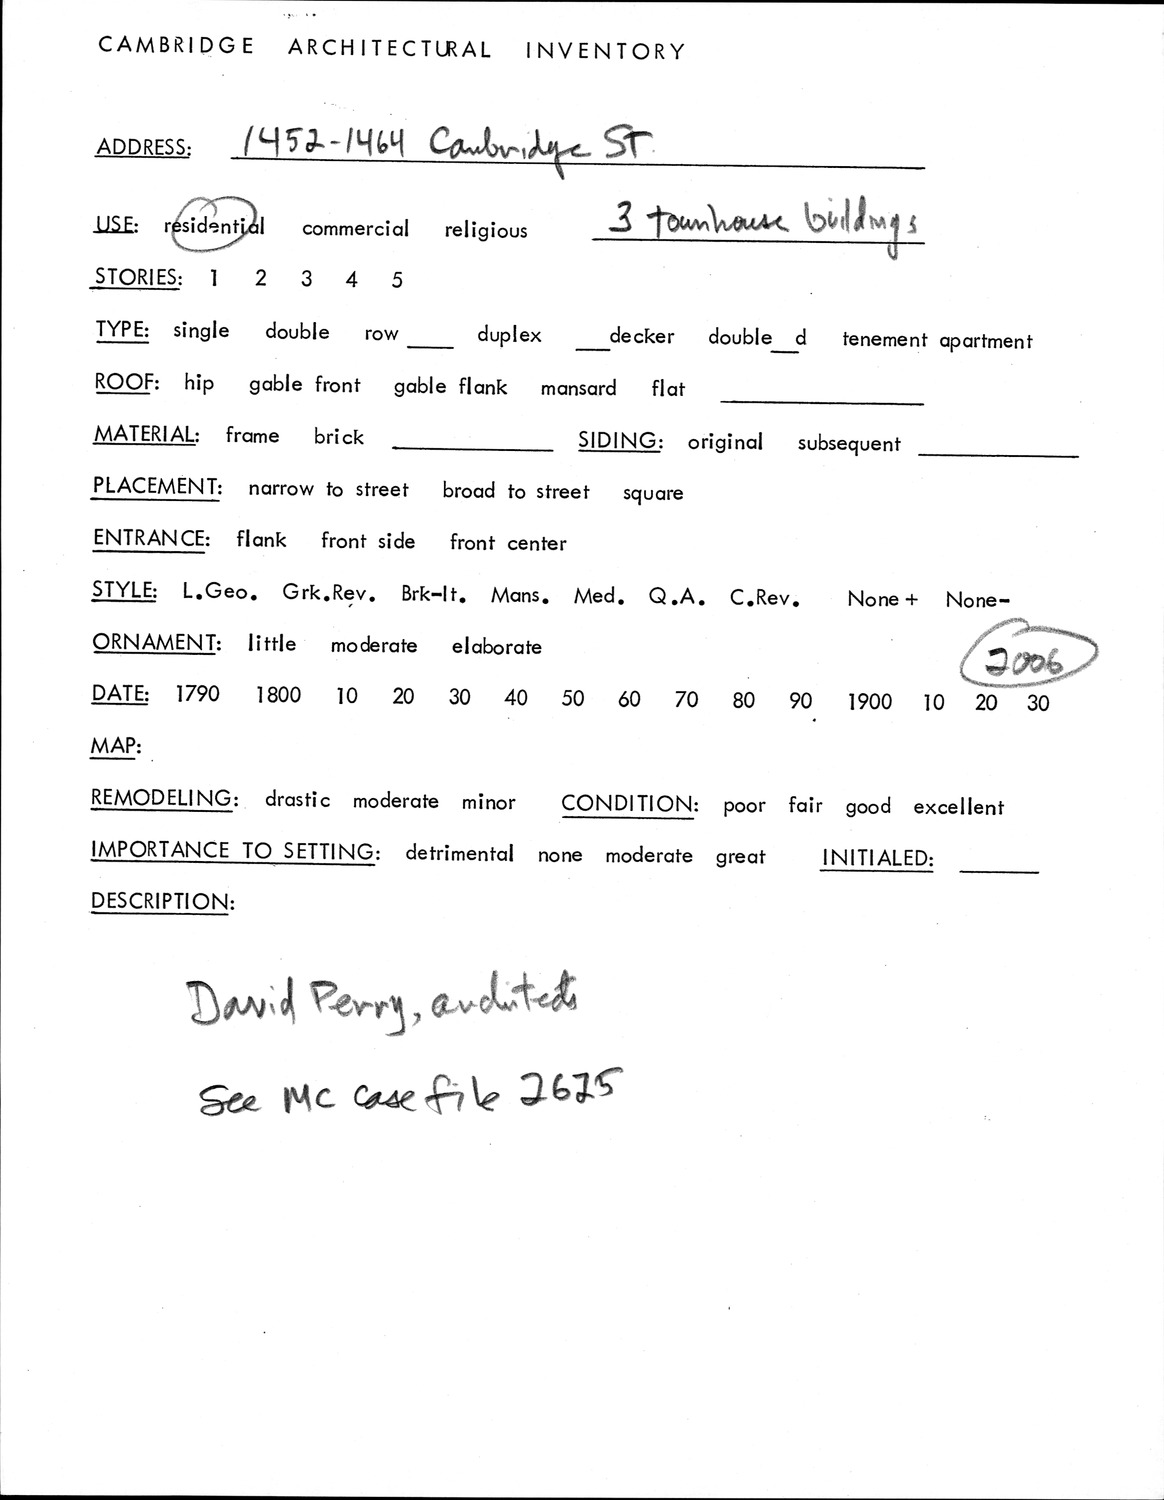 CAMBRIDGE ARCHITECTURAL INVENTORY
ADDRESS: 1452-1464 Cambridge ST.
USE: residential commercial religious 3 townhouse buildings
STORIES: 1 2 3 4 5
TYPE: single double row ____ duplex ___decker double__d tenement apartment
ROOF: hip gable front gable flank mansard flat ____
MATERIAL: frame brick ____ SIDING: original subsequent ____
PLACEMENT: narrow to street broad to street square
ENTRANCE: flank front side front center
STYLE: L.Geo. Grk.Rev. Brk-It. Mans. Med. Q.A. C.Rev. None+ None-
ORNAMENT: little moderate elaborate
2006
DATE: 1790 1800 10 20 30 40 50 60 70 80 90 1900 10 20 30
MAP:
REMODELING: drastic moderate minor CONDITION: poor fair good excellent
IMPORTANCE TO SETTING: detrimental none moderate great INITIALED: ____
DESCRIPTION:
David Perry, architects
See MC case file 2625